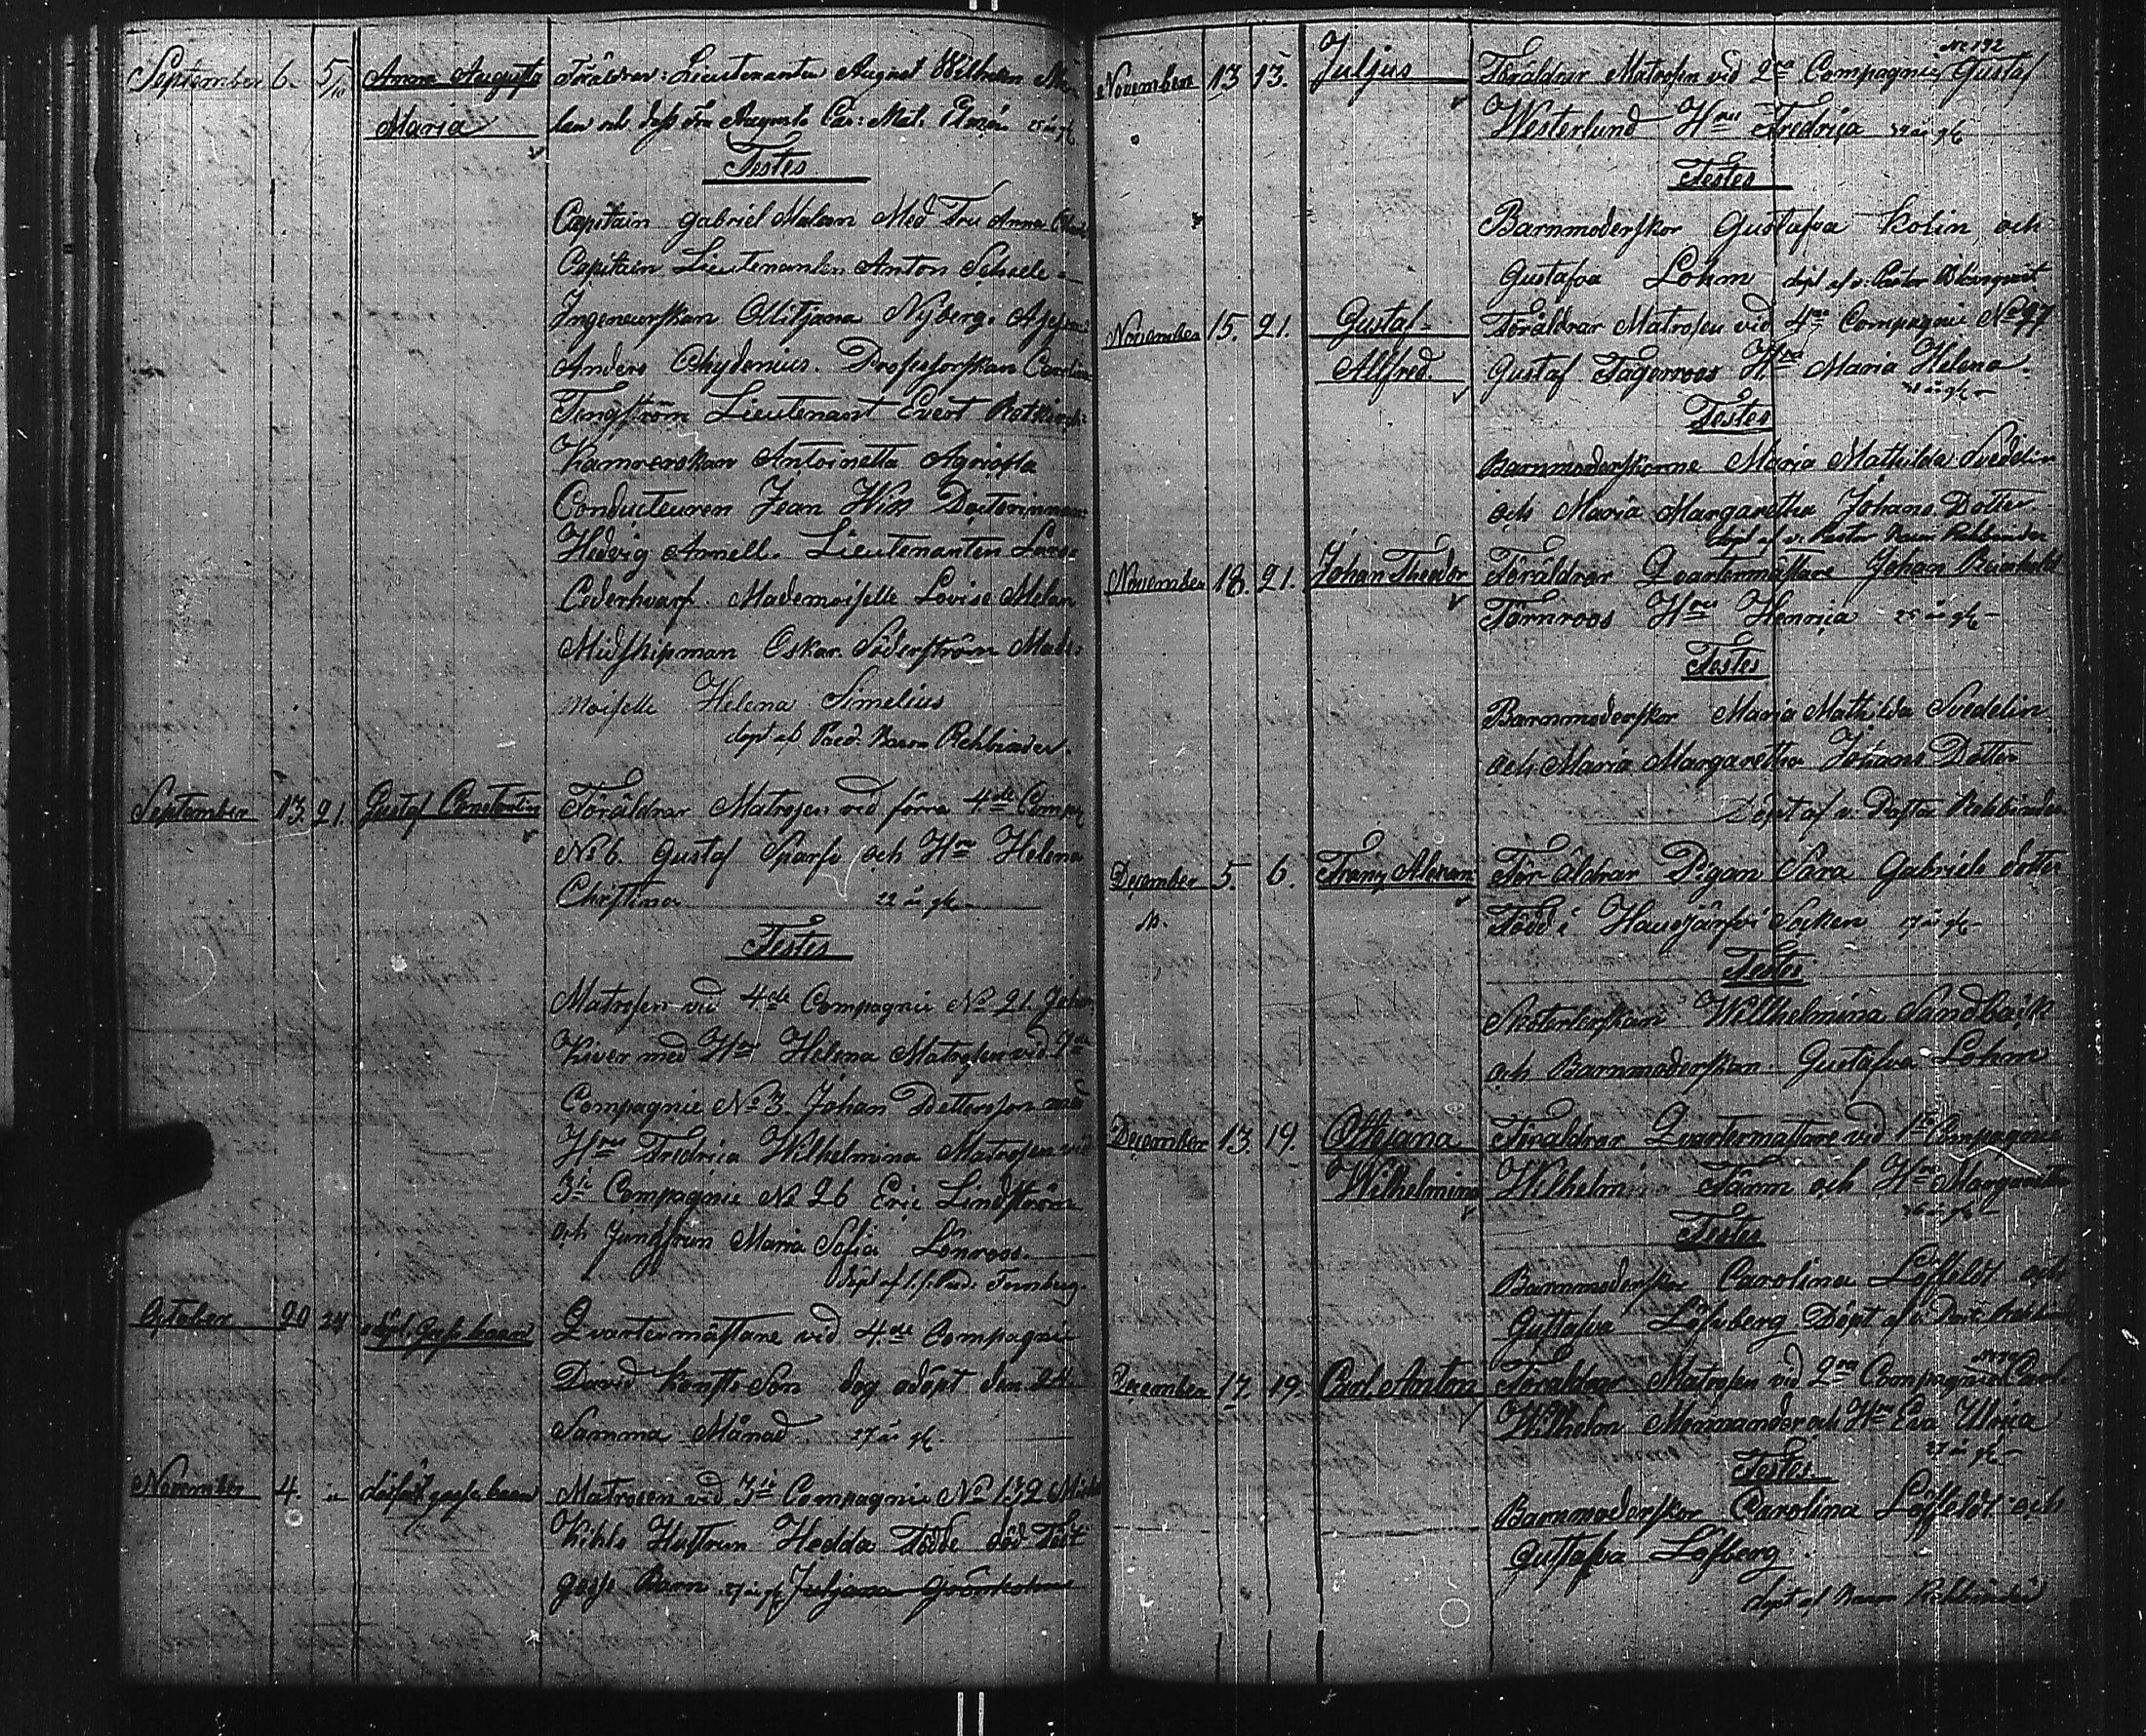 September 6. 5/10 Anna Augusta Föräldrar: Lieutenanten August Wilhelm
Maria och dess Fru Augusta Car: Mat. 25 år gl
Testes
Capitain Gabriel Melan Med Fru Anna
Capitain Lieutenanten Anton Scheele
Ingeneurskan Ottiljana Nyberg.
Anders Chydenius. Professorskan Carolina
Tengström Lieutenant Evert
Kamrerskan Antoinetta Agricola
Conducteuren Jean Wik Doctorinnan
Hedvig Arnell. Lieutenanten
Cederhvarf Mademoiselle Lovisa Melan
Midshipman Oskar Söderström Made:
moiselle Helena Simelius
döpt af Pred. Baron Rehbinder.
September 13. 21. Gustaf Constantin Föräldrar Matrosen vid förra 4de Comp
No 6. Gustaf Sparf och Hru Helena
Christina 22 år gl
Testes
Matrosen vid 4de Compagnie No 21. Johan
Kiver med Hru Helena Matrosen vid
Compagnie No 3. Johan Pettersson med
Hru Fredrica Wilhelmina Matrosen vid
3i Compagnie No 26 Eric Lindström
och Jungfrun Maria Sofia Lönroos.
döpt af Pred. Fernberg.
October 20 24 odöpt Gosse baarn Qvartermästare vid 4de Compagnie
David Son dog odöpt den
Samma Månad 27 år gl.
November 4. " dödfödt gosse baarn Matrosen vid 3i Compagnie No 132
Kihls Hustrun Hedda födde död födt
gosse Barn 27 år gl Juljana Grönholm
November 13 13. Juljus Föräldrar Matrosen vid 2ra Compagnie No 192 Gustaf
Westerlund Hru Fredrica 32 år gl
Testes
Barnmoderskor Gustafva Kolin och
Gustafva Lohm döpt af v. Pastor
November 15. 21. Gustaf Föräldrar Matrosen vid 4de Compagnie No 97
Allfred. Gustaf Fagerroos Hru Maria Helena.
år gl
Testes
Barnmoderskorne Maria Mathilda Svedelin
och Maria Margaretha Johans Dotter
döpt af v. Pastor Baron Rehbinder
November 18. 21. Johan Theodor Föräldrar Qvartermästare Johan Reinhold
Törnroos Hru Henrica 25 år gl
Testes
Barnmoderskor Maria Mathilda Svedelin
och Maria Margaretha Johans Dotter
Döpt af v. Pastor Rehbinder
December 5. 6. Franz Alexan Föräldrar Pigan Sara Gabriels dotter
Född i Hausjärfvi Socken 17 år gl
Testes
Willhelmina Sandbäck
och Barnmoderskan Gustafva Lohm
December 13. 19. Ottiliana Föräldrar Qvartermästare vid 1sta Compagnie
Wilhelmina Wilhelm Tamm och Hru Margareta
26 år gl
Testes
Barnmoderskor Carolina Löffeldt och
Gustafva Löfberg Döpt af v. Past. Rehbinder
December 17. 19. Carl Anton Föräldrar Matrosen vid 2ra Compagnie Carl
Wilhelm Merimander och Hru Eva Ulrica
år gl
Testes
Barnmoderskor Carolina Löffeldt och
Gustafva Löfberg.
döpt af Baron Rehbinder